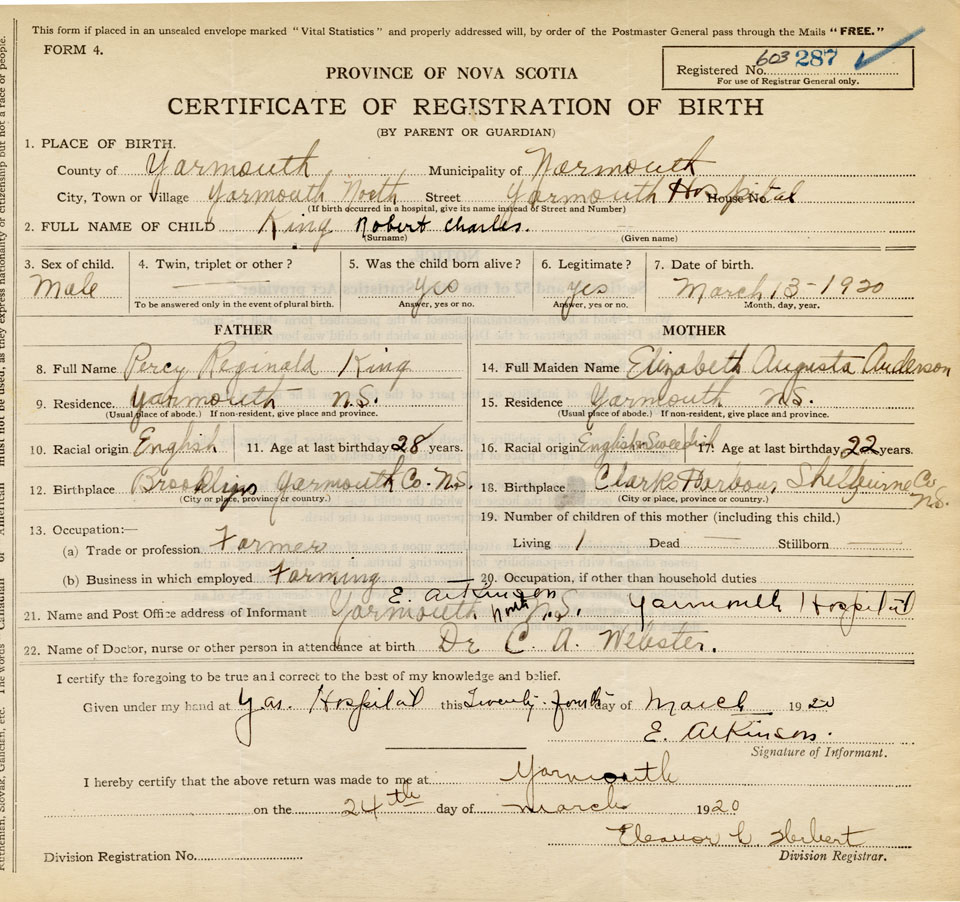 This form if placed in an unsealed envelope marked "Vital Statistics" and properly addressed will, by order of the Postmaster General pass through the Mails "FREE."
FORM 4.
Registered No. 603 287
For use of Registrar General only.
PROVINCE OF NOVA SCOTIA
CERTIFICATE OF REGISTRATION OF BIRTH
(BY PARENT OR GUARDIAN)
1. PLACE OF BIRTH.
County of Yarmouth Municipality of Yarmouth
City, Town or Village Yarmouth North Street Yarmouth Hospital House No.
(If birth occurred in a hospital, give its name instead of Street and Number)
2. FULL NAME OF CHILD King Robert Charles.
(Surname) (Given name)
3. Sex of child. 4. Twin, triplet or other? 5. Was the child born alive? 6. Legitimate? 7. Date of birth.
Male yes yes March 13-1920
To be answered only in the event of plural birth. Answer, yes or no. Answer, yes or no. Month, day, year.
FATHER MOTHER
8. Full Name Percy Reginald King 14. Full Maiden Name Elizabeth Augusta Anderson
9. Residence. Yarmouth N.S. 15. Residence Yarmouth N.S.
(Usual place of abode.) If non-resident, give place and province. (Usual place of abode.) If non-resident, give place and province.
10. Racial origin English 11. Age at last birthday 28 years. 16. Racial origin English Swedish 17. Age at last birthday 22 years.
12. Birthplace Brooklyn Yarmouth Co. N.S. 18. Birthplace Clarks Harbour, Shelburne Co N.S.
(City or place, province or country.) (City or place, province or country.)
13. Occupation:— 19. Number of children of this mother (including this child.)
(a) Trade or profession Farmer Living 1 Dead Stillborn
(b) Business in which employed Farming 20. Occupation, if other than household duties
E. Atkinson
21. Name and Post Office address of Informant Yarmouth North N.S. Yarmouth Hospital
22. Name of Doctor, nurse or other person in attendance at birth Dr C. A. Webster.
I certify the foregoing to be true and correct to the best of my knowledge and belief.
Given under my hand at Yar. Hospital this Twenty-fourth day of March 1920
E. Atkinson.
Signature of Informant.
I hereby certify that the above return was made to me at Yarmouth
on the 24th day of March 1920
Eleanor L. Herbert
Division Registration No. Division Registrar.
must not be used, as they express nationality or citizenship but not a race or people.
The words Canadian or American
Ruthenian, Slovak, Galician, etc.